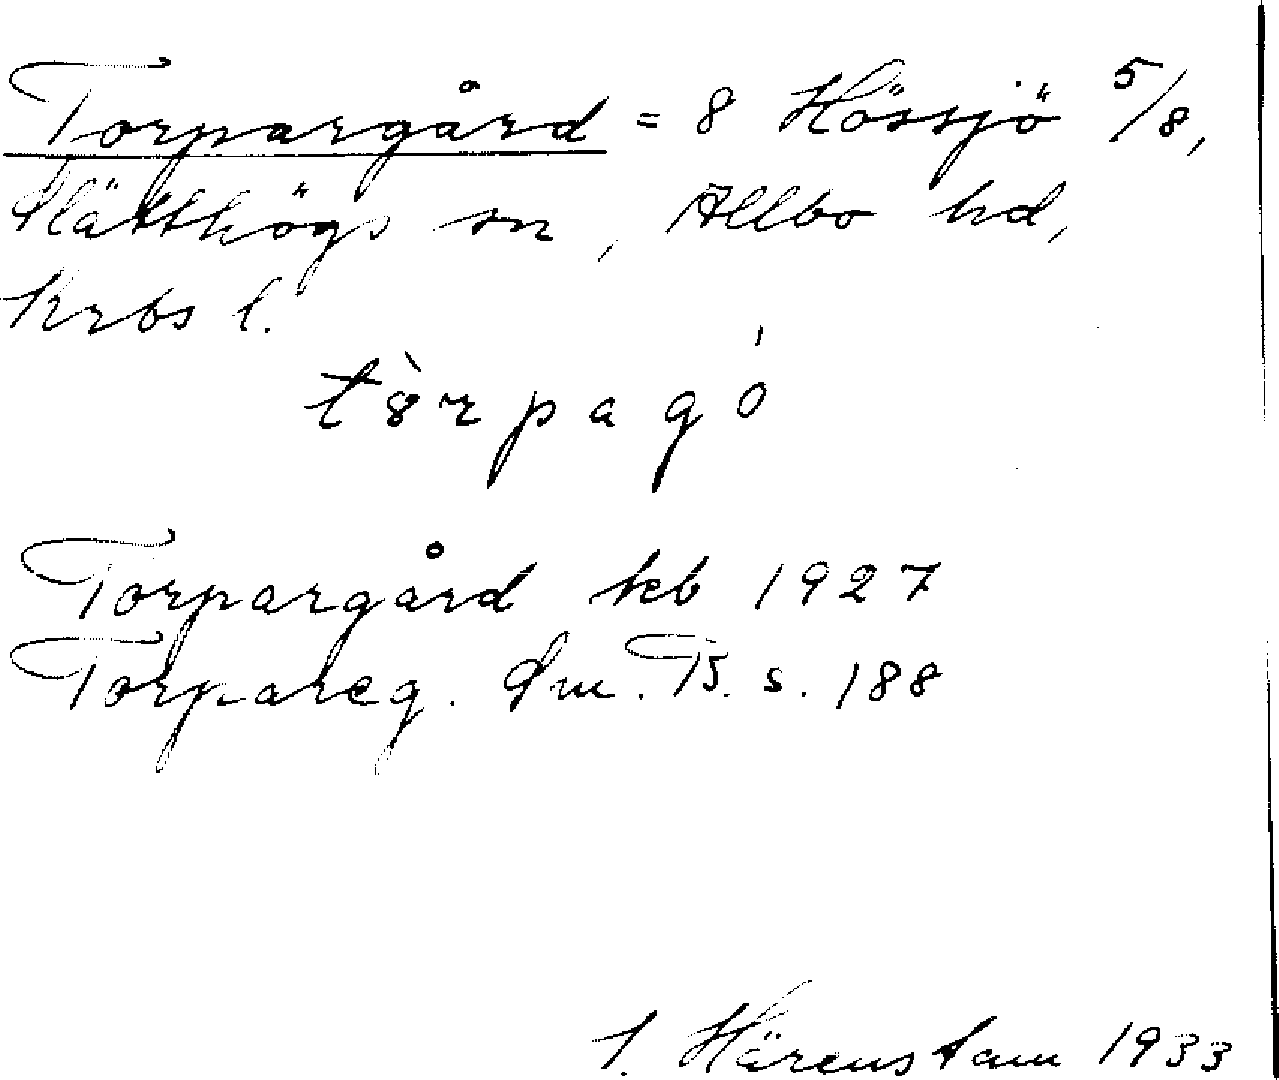 Torpargård = 8 Hössjö 5/8,
Slätthögs sn, Allbo hd,
Krbs l.
tòrpagó
Torpargård kb 1927
Torpareg. Sm. B. s. 188
I. Härenstam 1933